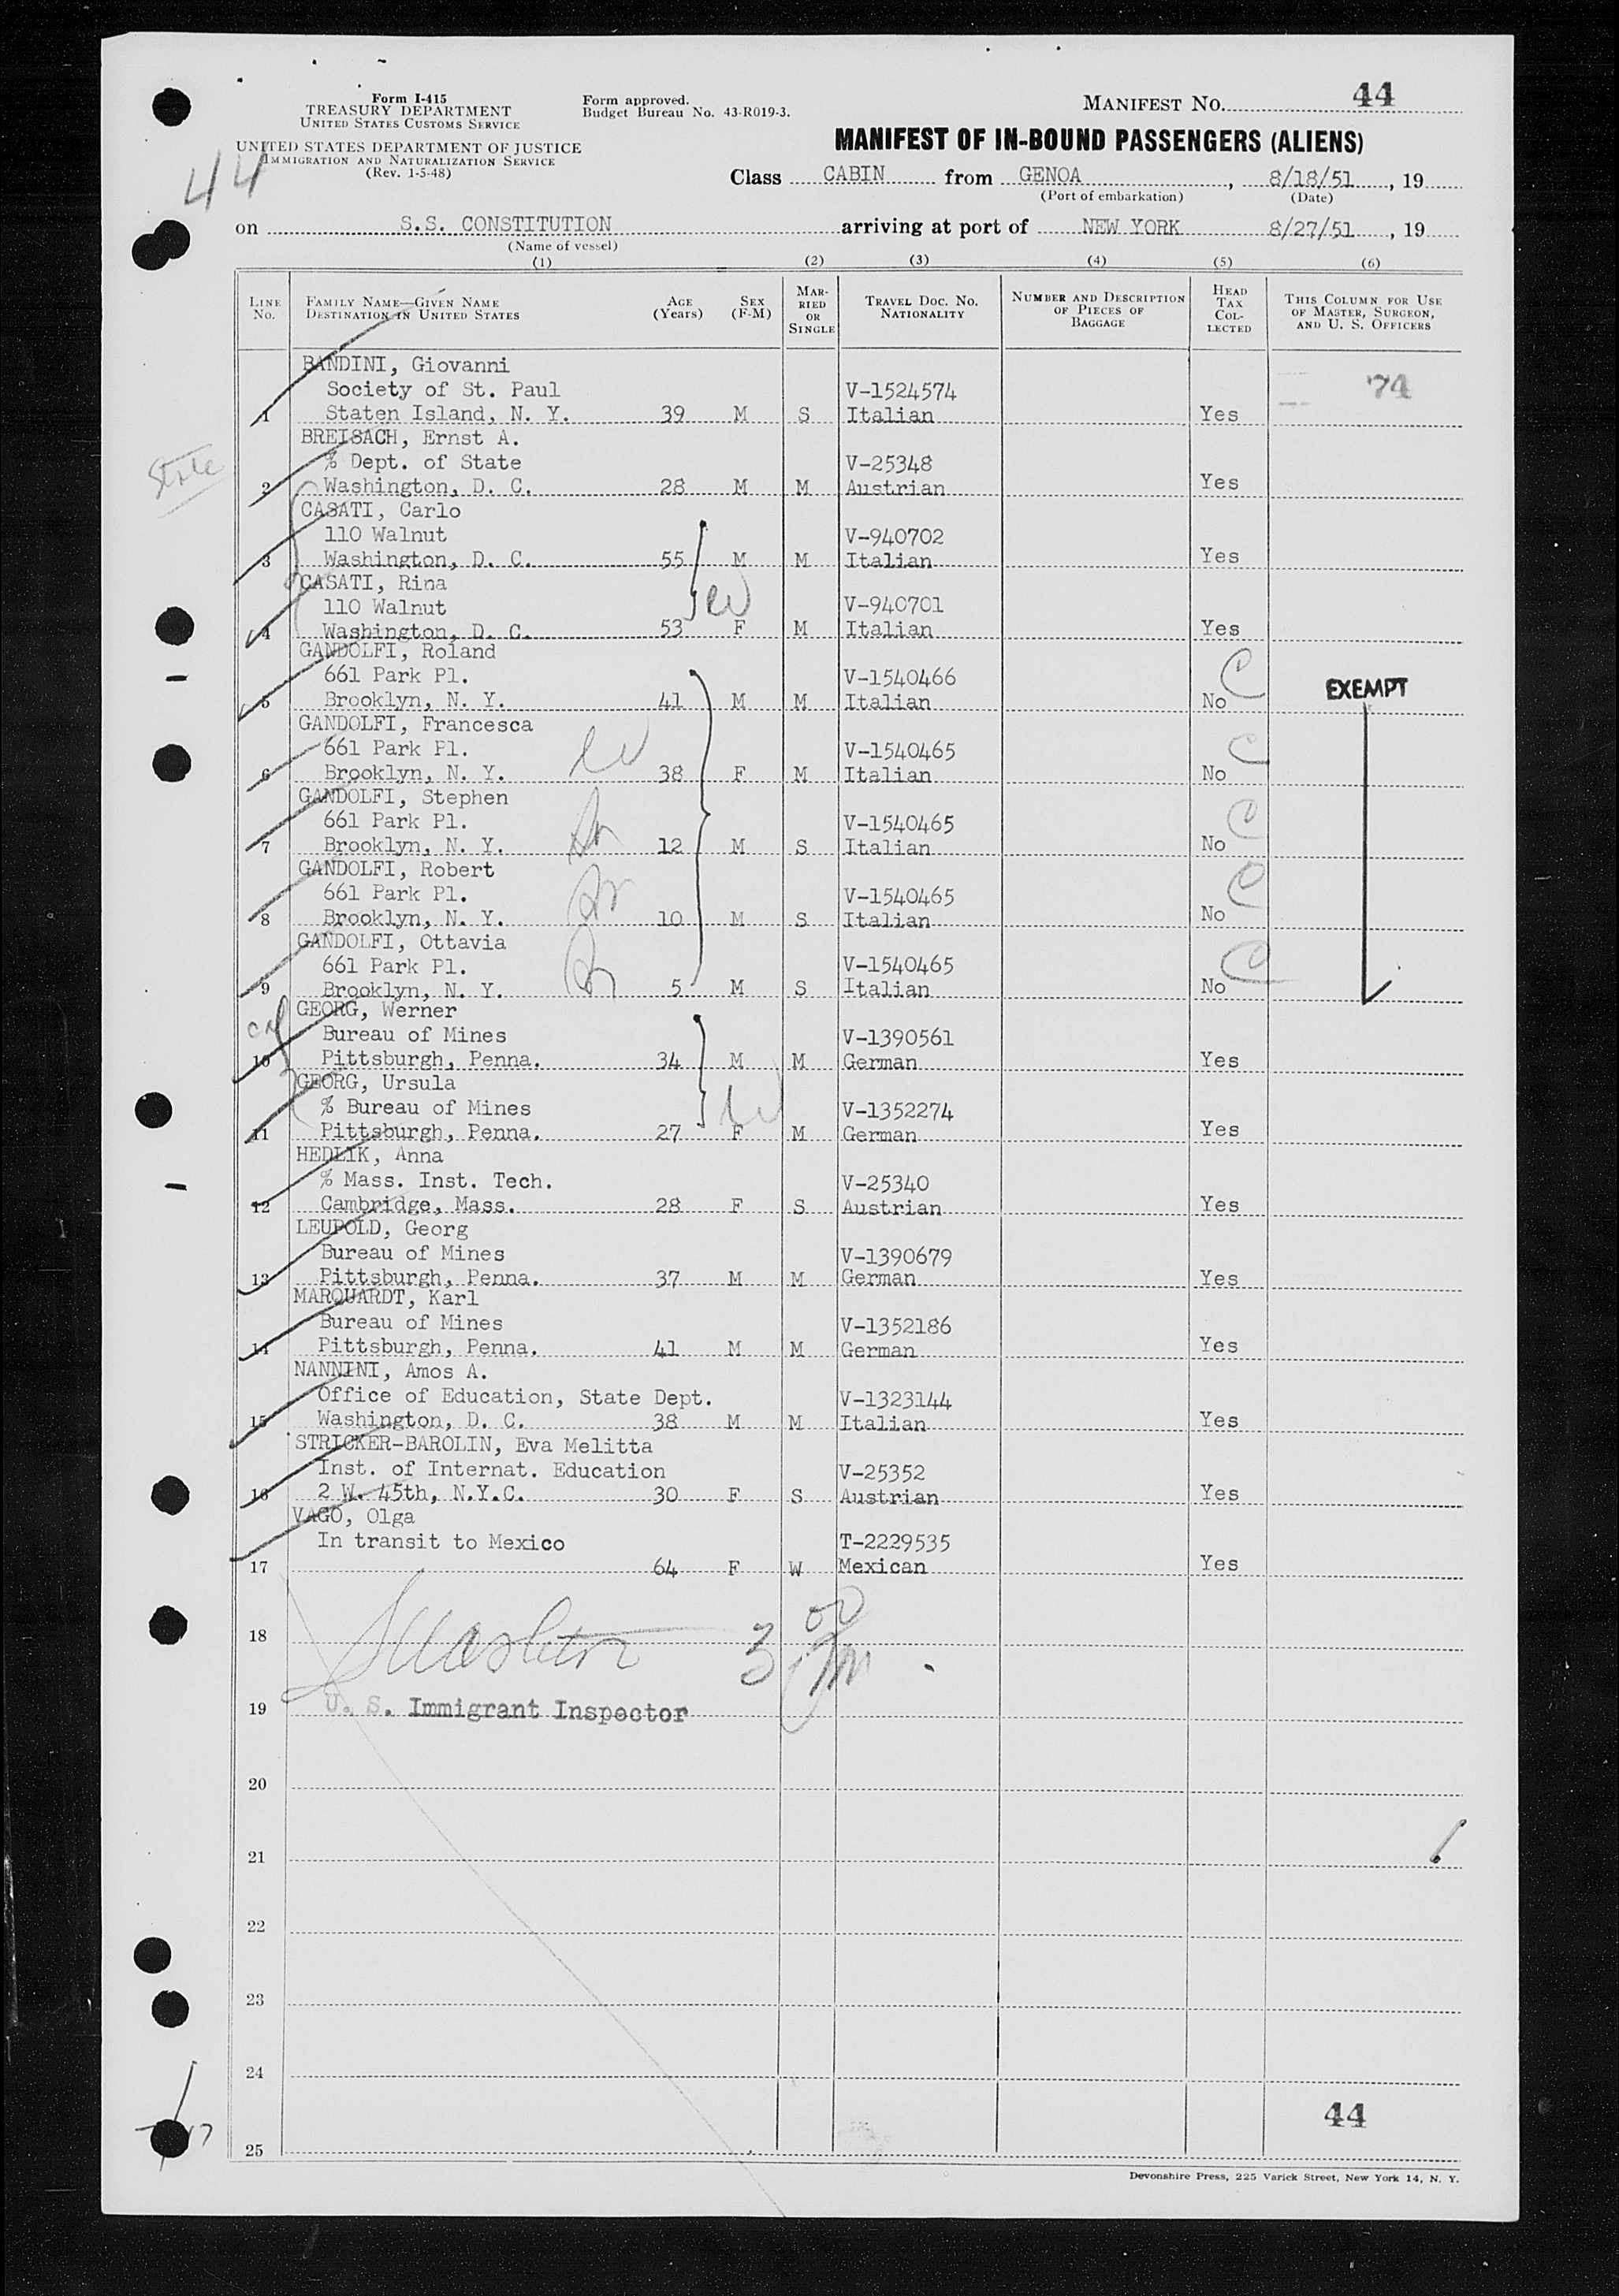 Form I-415
TREASURY DEPARTMENT
UNITED STATES CUSTOMS SERVICE
UNITED STATES DEPARTMENT OF JUSTICE
IMMIGRATION AND NATURALIZATION SERVICE
(Rev. 1-5-48)
44
Form approved.
Budget Bureau No. 43-R019-3.
MANIFEST NO. 44
MANIFEST OF IN-BOUND PASSENGERS (ALIENS)
Class CABIN from GENOA, 8/18/51, 19
(Port of embarkation) (Date)
on S.S. CONSTITUTION arriving at port of NEW YORK 8/27/51, 19
(Name of vessel)
(1) (2) (3) (4) (5) (6)
LINE NO. FAMILY NAME—GIVEN NAME DESTINATION IN UNITED STATES AGE (Years) SEX (F-M) MARRIED OR SINGLE TRAVEL DOC. NO. NATIONALITY NUMBER AND DESCRIPTION OF PIECES OF BAGGAGE HEAD TAX COLLECTED THIS COLUMN FOR USE OF MASTER, SURGEON, AND U. S. OFFICERS
BANDINI, Giovanni
Society of St. Paul V-1524574 74
1 Staten Island, N. Y. 39 M S Italian Yes
BREISACH, Ernst A.
State % Dept. of State V-25348
2 Washington, D. C. 28 M M Austrian Yes
CASATI, Carlo
110 Walnut V-940702
3 Washington, D. C. 55 M M Italian Yes
CASATI, Rina
110 Walnut V-940701
4 Washington, D. C. 53 F M Italian Yes
GANDOLFI, Roland
661 Park Pl. V-1540466 C EXEMPT
5 Brooklyn, N. Y. 41 M M Italian No
GANDOLFI, Francesca
661 Park Pl. V-1540465 C
6 Brooklyn, N. Y. 38 F M Italian No
GANDOLFI, Stephen
661 Park Pl. V-1540465 C
7 Brooklyn, N. Y. 12 M S Italian No
GANDOLFI, Robert
661 Park Pl. V-1540465 C
8 Brooklyn, N. Y. 10 M S Italian No
GANDOLFI, Ottavia
661 Park Pl. V-1540465 C
9 Brooklyn, N. Y. 5 M S Italian No
GEORG, Werner
Bureau of Mines V-1390561
10 Pittsburgh, Penna. 34 M M German Yes
GEORG, Ursula
% Bureau of Mines V-1352274
11 Pittsburgh, Penna. 27 F M German Yes
HEDLIK, Anna
% Mass. Inst. Tech. V-25340
12 Cambridge, Mass. 28 F S Austrian Yes
LEUPOLD, Georg
Bureau of Mines V-1390679
13 Pittsburgh, Penna. 37 M M German Yes
MARQUARDT, Karl
Bureau of Mines V-1352186
14 Pittsburgh, Penna. 41 M M German Yes
NANNINI, Amos A.
Office of Education, State Dept. V-1323144
15 Washington, D. C. 38 M M Italian Yes
STRICKER-BAROLIN, Eva Melitta
Inst. of Internat. Education V-25352
16 2 W. 45th, N.Y.C. 30 F S Austrian Yes
VAGO, Olga
In transit to Mexico T-2229535
17 64 F W Mexican Yes
18
19 U. S. Immigrant Inspector
20
21
22
23
24
44
25
Devonshire Press, 225 Varick Street, New York 14, N. Y.